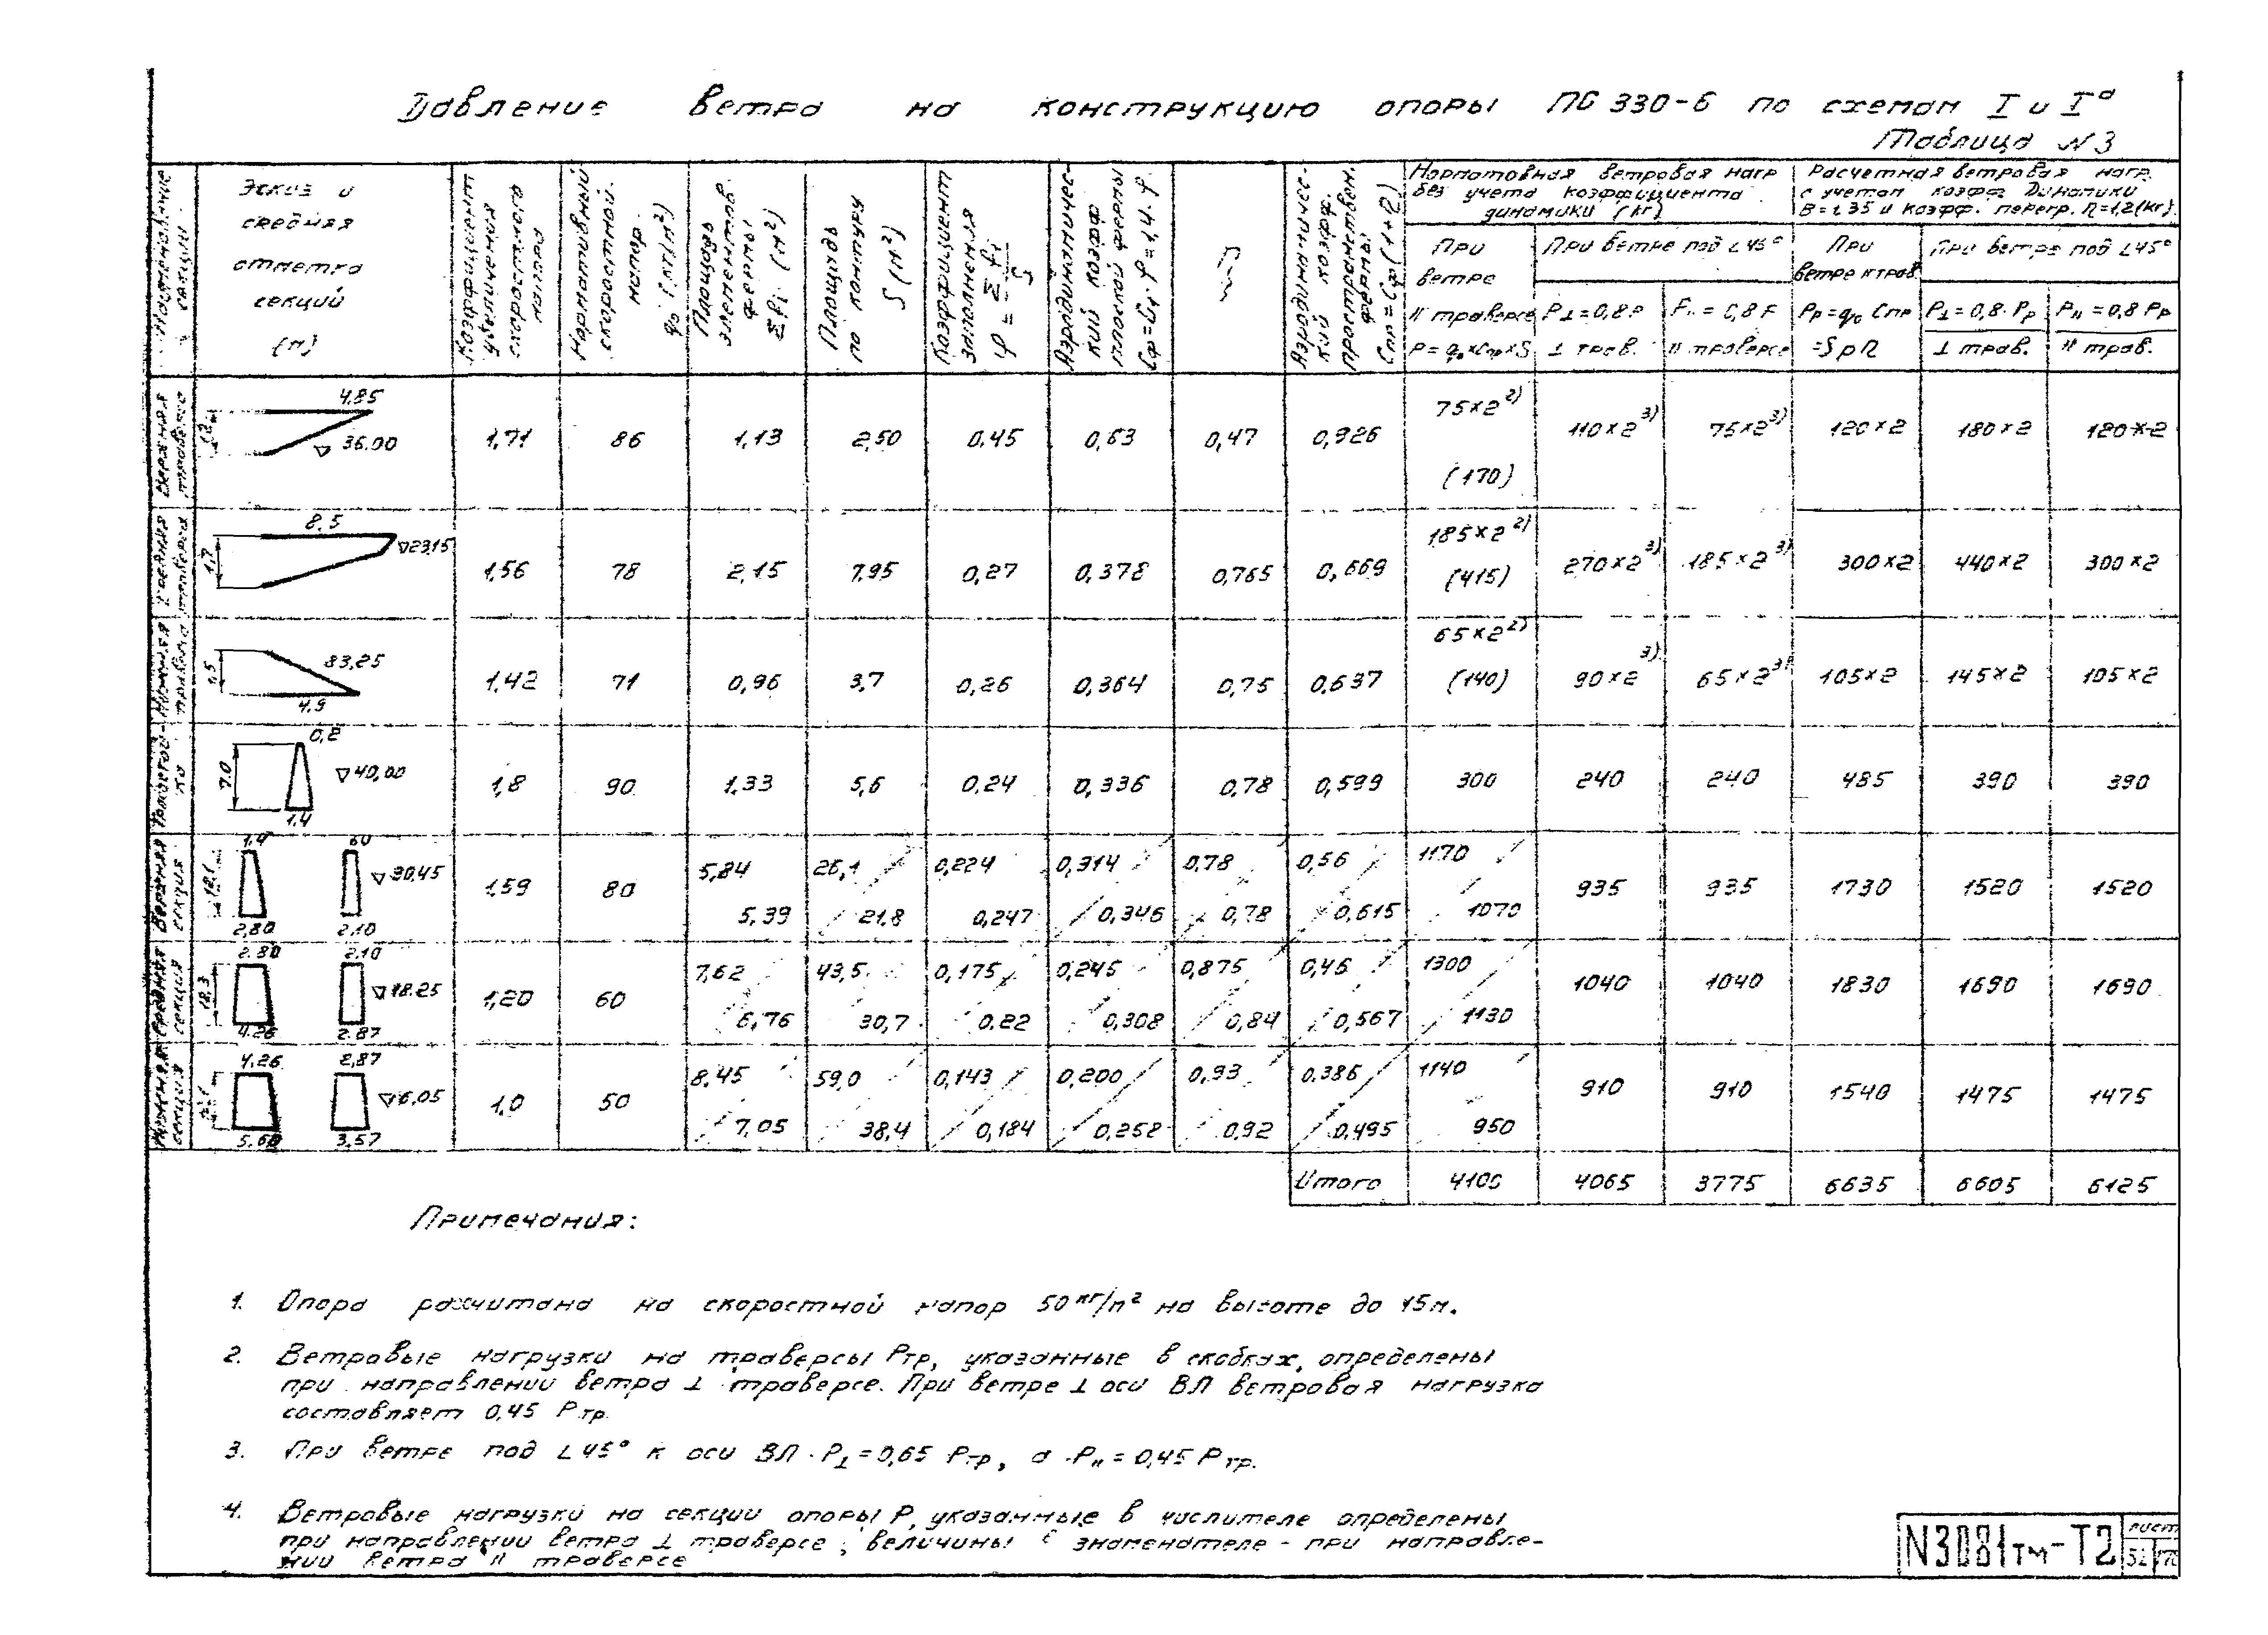 Давление ветра на конструкцию опоры ПС 330-6 по схемам I и Iа
Таблица N3
Наименование секции
Эскиз и средняя отметка секций (м)
Коэффициент увеличения скоростного напора
Нормативный скоростной напор q₀ (кг/м²)
Площадь элементов фермы Σfᵢ (м²)
Площадь по контуру S (м²)
Коэффициент заполнения φ = Σfᵢ/S
Аэродинамический коэфф плоской фермы Cφ=C₁·φ=1,4·φ
Аэродинамический коэфф. пространствен. фермы Cпр=Cφ(1+η)
Нормативная ветровая нагр без учета коэффициента динамики (кг)
Расчетная ветровая нагр. с учетом коэфф динамики B=1,35 и коэфф. перегр. n=1,2(кг).
При ветре II траверсе P=q₀×Cпр×S
При ветре под ∠45°
P⊥=0,8P ⊥ трав.
II траверсе
При ветре к трав.
При ветре под ∠45°
P⊥=0,8·Pр ⊥ трав.
P॥=0,8 Pр II трав.
4,85 ▽36.00 1,71 86 1,13 2,50 0,45 0,63 0,47 0,926 75×2²⁾ (170) 110×2³⁾ 75×2³⁾ 120×2 180×2 120×2
8,5 1,7 ▽23,15 1,56 78 2,15 7,95 0,27 0,378 0,765 0,669 185×2²⁾ (415) 270×2³⁾ 185×2³⁾ 300×2 440×2 300×2
1,5 83,25 4,9 1,42 71 0,96 3,7 0,26 0,364 0,75 0,637 65×2²⁾ (140) 90×2³⁾ 65×2³⁾ 105×2 145×2 105×2
0,2 7,0 ▽40,00 1,4 1,8 90 1,33 5,6 0,24 0,336 0,78 0,599 300 240 240 485 390 390
Верхняя секция 1,4 ▽30,45 2,80 2,10 1,59 80 5,84 / 5,39 26,1 / 21,8 0,224 / 0,247 0,314 / 0,346 0,78 / 0,78 0,56 / 0,615 1170 / 1070 935 935 1730 1520 1520
Средняя секция 2.80 2.10 ▽18.25 4.26 2.87 1,20 60 7,62 / 6,76 43,5 / 30,7 0,175 / 0,22 0,245 / 0,308 0,875 / 0,84 0,46 / 0,567 1300 / 1130 1040 1040 1830 1690 1690
Нижняя секция 4,26 2,87 ▽6,05 5.68 3,57 1,0 50 8,45 / 7,05 59,0 / 38,4 0,143 / 0,184 0,200 / 0,258 0,93 / 0,92 0,386 / 0,495 1140 / 950 910 910 1540 1475 1475
Итого 4100 4065 3775 6635 6605 6125
Примечания:
1. Опора рассчитана на скоростной напор 50 кг/м² на высоте до 15м.
2. Ветровые нагрузки на траверсы Pтр, указанные в скобках, определены
при направлении ветра ⊥ траверсе. При ветре ⊥ оси ВЛ ветровая нагрузка
составляет 0,45 Pтр.
3. При ветре под ∠45° к оси ВЛ P⊥=0,65 Pтр, а P॥=0,45 Pтр.
4. Ветровые нагрузки на секции опоры P, указанные в числителе определены
при направлении ветра ⊥ траверсе, величины в знаменателе - при направле-
нии ветра II траверсе
N3081тм-Т2
лист